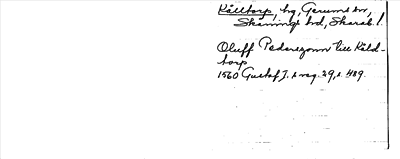 Källtorp, hg, Gerums sn,
Skånings hd, Skarab. l.
Oluff Pederszonn till Käld-
torp
1560 Gustaf I:s reg. 29, s. 489.